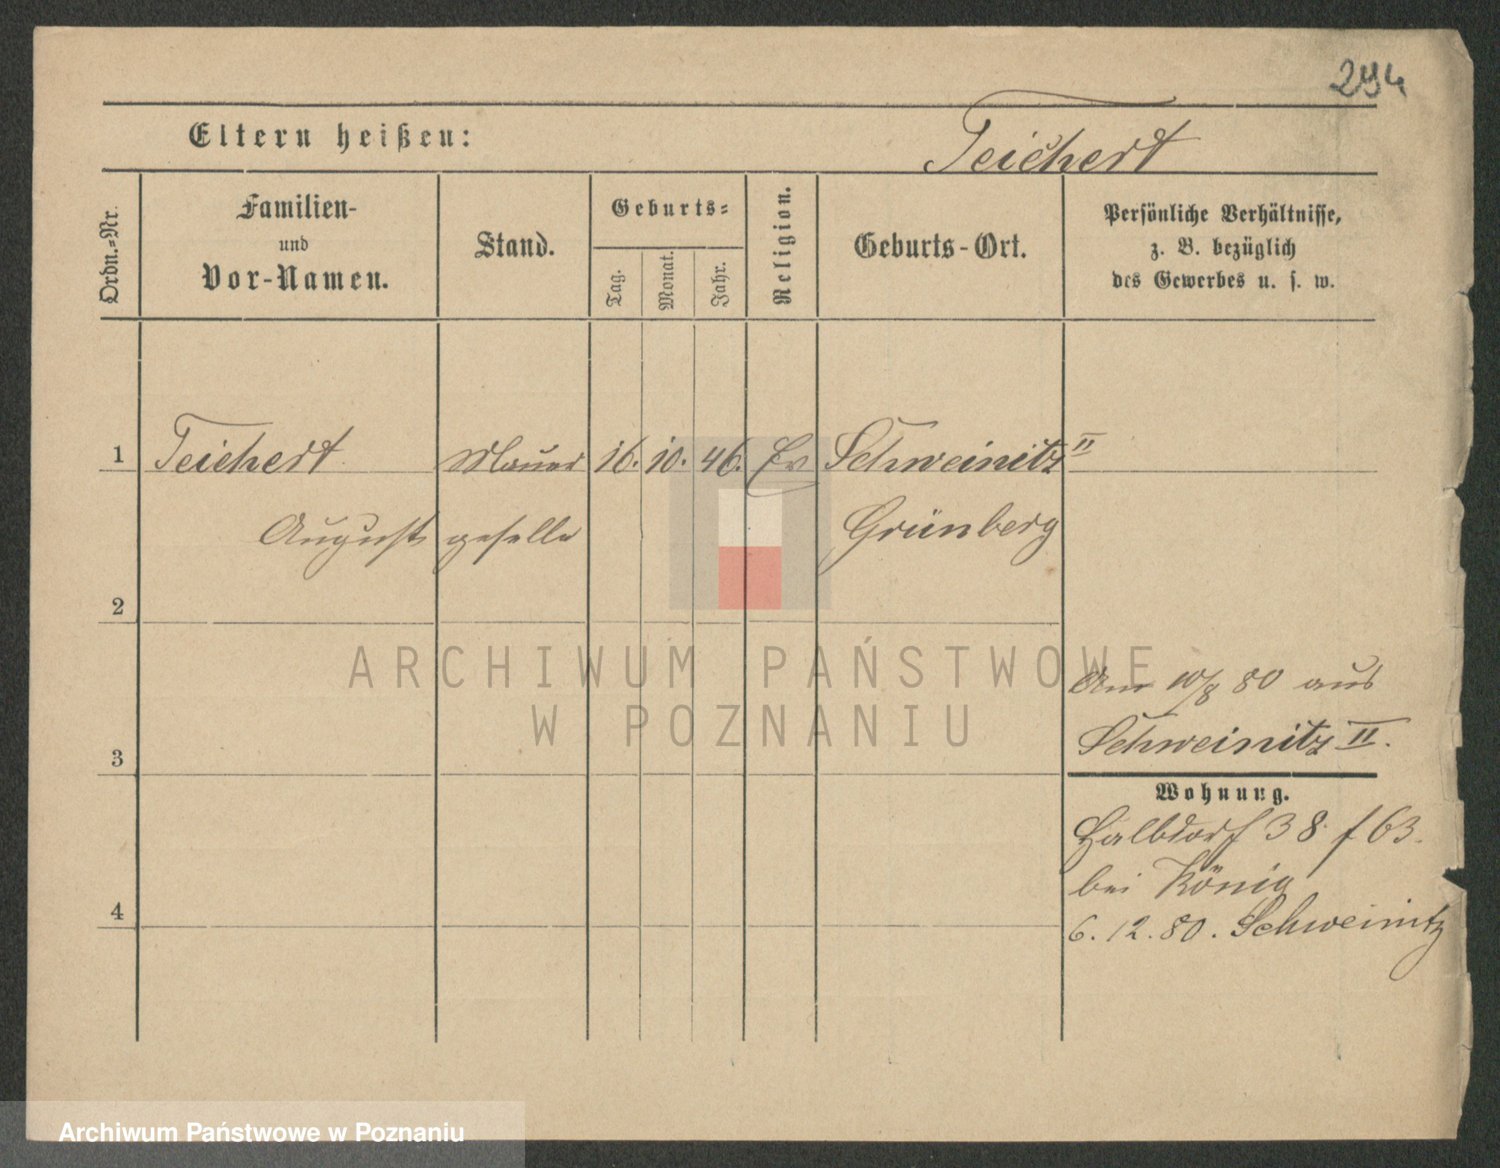 294
Eltern heißen:
Teichert
Ordn.=Nr.
Familien-
und
Vor-Namen.
Stand.
Geburts=
Tag.
Monat.
Jahr.
Religion.
Geburts-Ort.
Persönliche Verhältnisse,
z. B. bezüglich
des Gewerbes u. s. w.
1 Teichert Maurer 16. 10. 46. Ev Schweinitz II
August geselle Grünberg
2
ARCHIWUM PAŃSTWOWE
W POZNANIU
Am 10/8 80 aus
Schweinitz II.
3
Wohnung.
Halbdorf 38. f 63.
bei König
4
6. 12. 80. Schweinitz
Archiwum Państwowe w Poznaniu